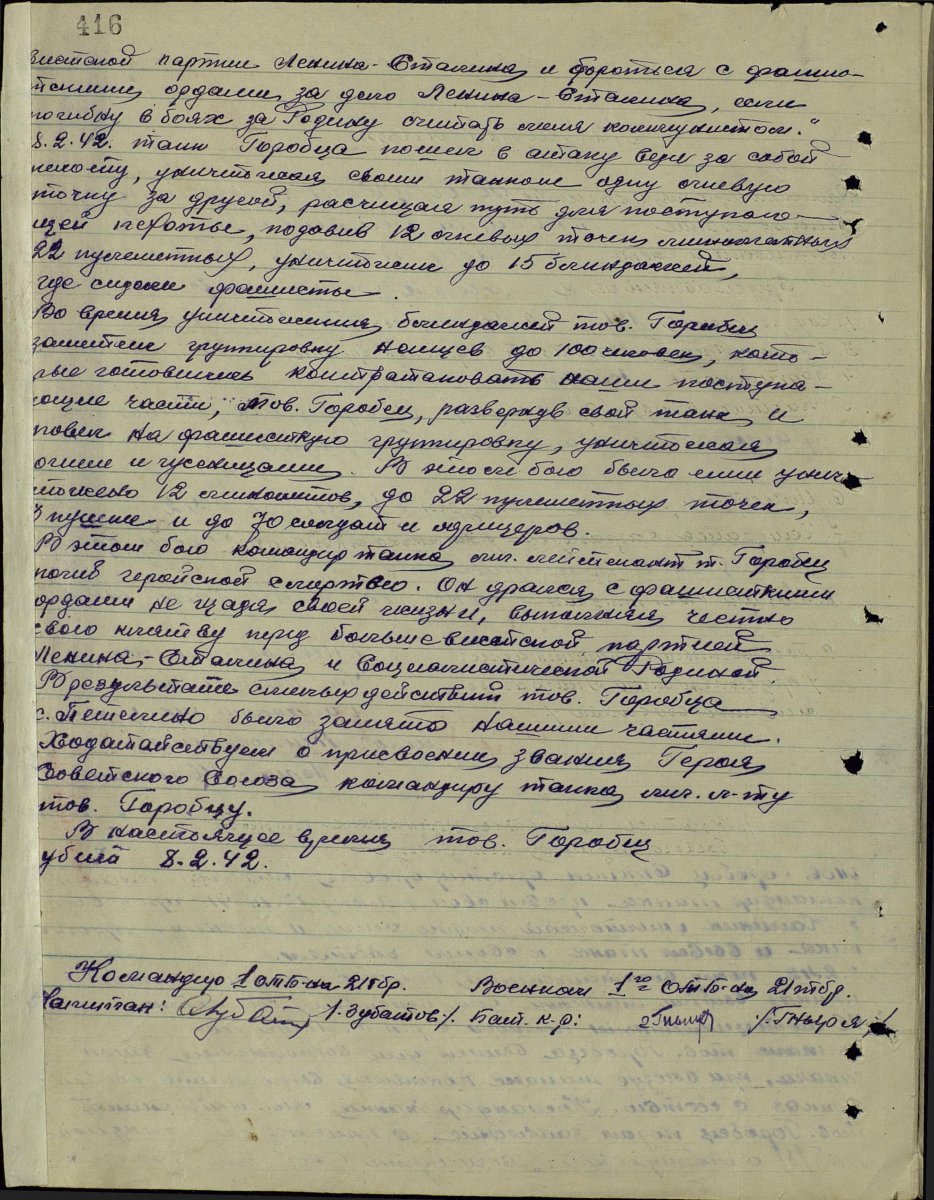 416
вистской партии Ленина-Сталина и бороться с фашис-
тскими ордами за дело Ленина-Сталина, если
погибну в боях за Родину считать меня коммунистом."
8.2.42. танк Горобца пошел в атаку ведя за собой
пехоту, уничтожая своим танком одну огневую
точку за другой, расчищая путь для поступаю-
щей пехоты, подавив 12 огневых точек минометных
22 пулеметных, уничтожил до 15 блиндажей,
где сидели фашисты.
Во время уничтожения блиндажей тов. Горобец
заметил группировку немцев до 100 человек, кото-
рые готовились контратаковать наши поступа-
ющие части, тов. Горобец, развернув свой танк и
повел на фашисткую группировку, уничтожая
огнем и гусеницами. В этом бою было ими унич-
тожено 12 минометов, до 22 пулеметных точек,
3 пушки и до 70 солдат и офицеров.
В этом бою командир танка мл. лейтенант т. Горобец
погиб геройской смертью. Он дрался с фашисткими
ордами не щадя своей жизни, выполняя честно
свою клятву перед большевисткой партией
Ленина-Сталина и Социалистической Родиной.
В результате смелых действий тов. Горобца
с. Петелино было занято нашими частями.
Ходатайствуем о присвоении звания Героя
Советского Союза командиру танка мл. л-ту
тов. Горобцу.
В настоящее время тов. Горобец
убит 8.2.42.
Командир 1 ОТБ-на 21тбр. Военком 1го ОТБ-на 21тбр.
Капитан: /.Зубатов./. Бат. к-р: /.Гныря./